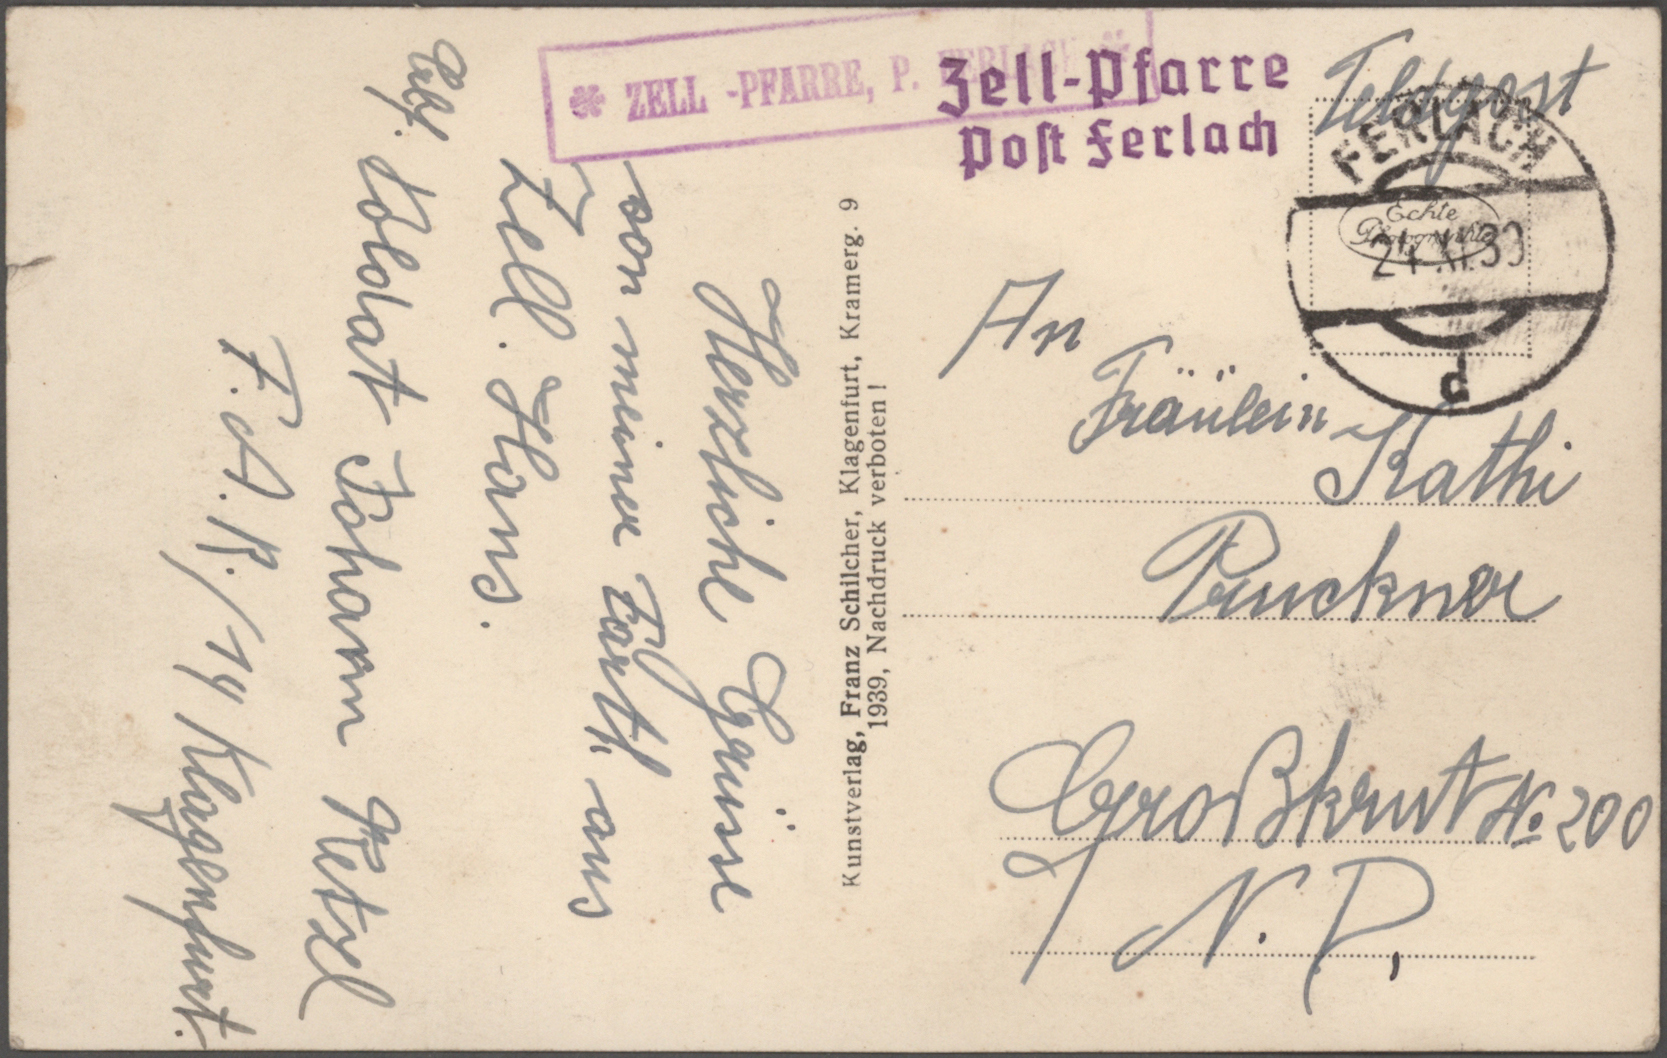 ✽ ZELL -PFARRE, P. FERLACH ✽
Zell-Pfarre
Post Ferlach
Feldpost
FERLACH
24.XI.39
d
Echte
Photographie
An
Fräulein Kathi
Pruckner
Großkrut No 200
N. D.
Kunstverlag, Franz Schilcher, Klagenfurt, Kramerg. 9
1939, Nachdruck verboten!
Herzliche Grüsse
von meiner Fahrt, aus
Zell. Hans.
Soldat Johann Hetzel
F. A. R. / 14 Klagenfurt.